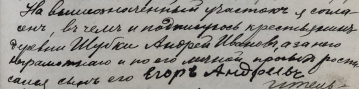 На вышеозначенный участокъ я согла
сенъ, въ чемъ и подписуюсь крестьянинъ
деревни Шубки Андрей Ивановъ, а за него
неграмотнаго и по его личной прозьбѣ роспи
сался сынъ его Егоръ Андреевъ